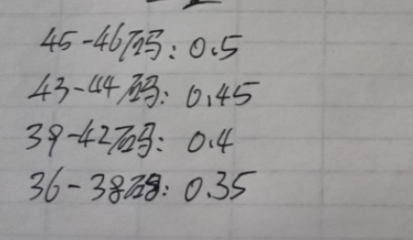 45-46码: 0.5
43-44码: 0.45
39-42码: 0.4
36-38码: 0.35